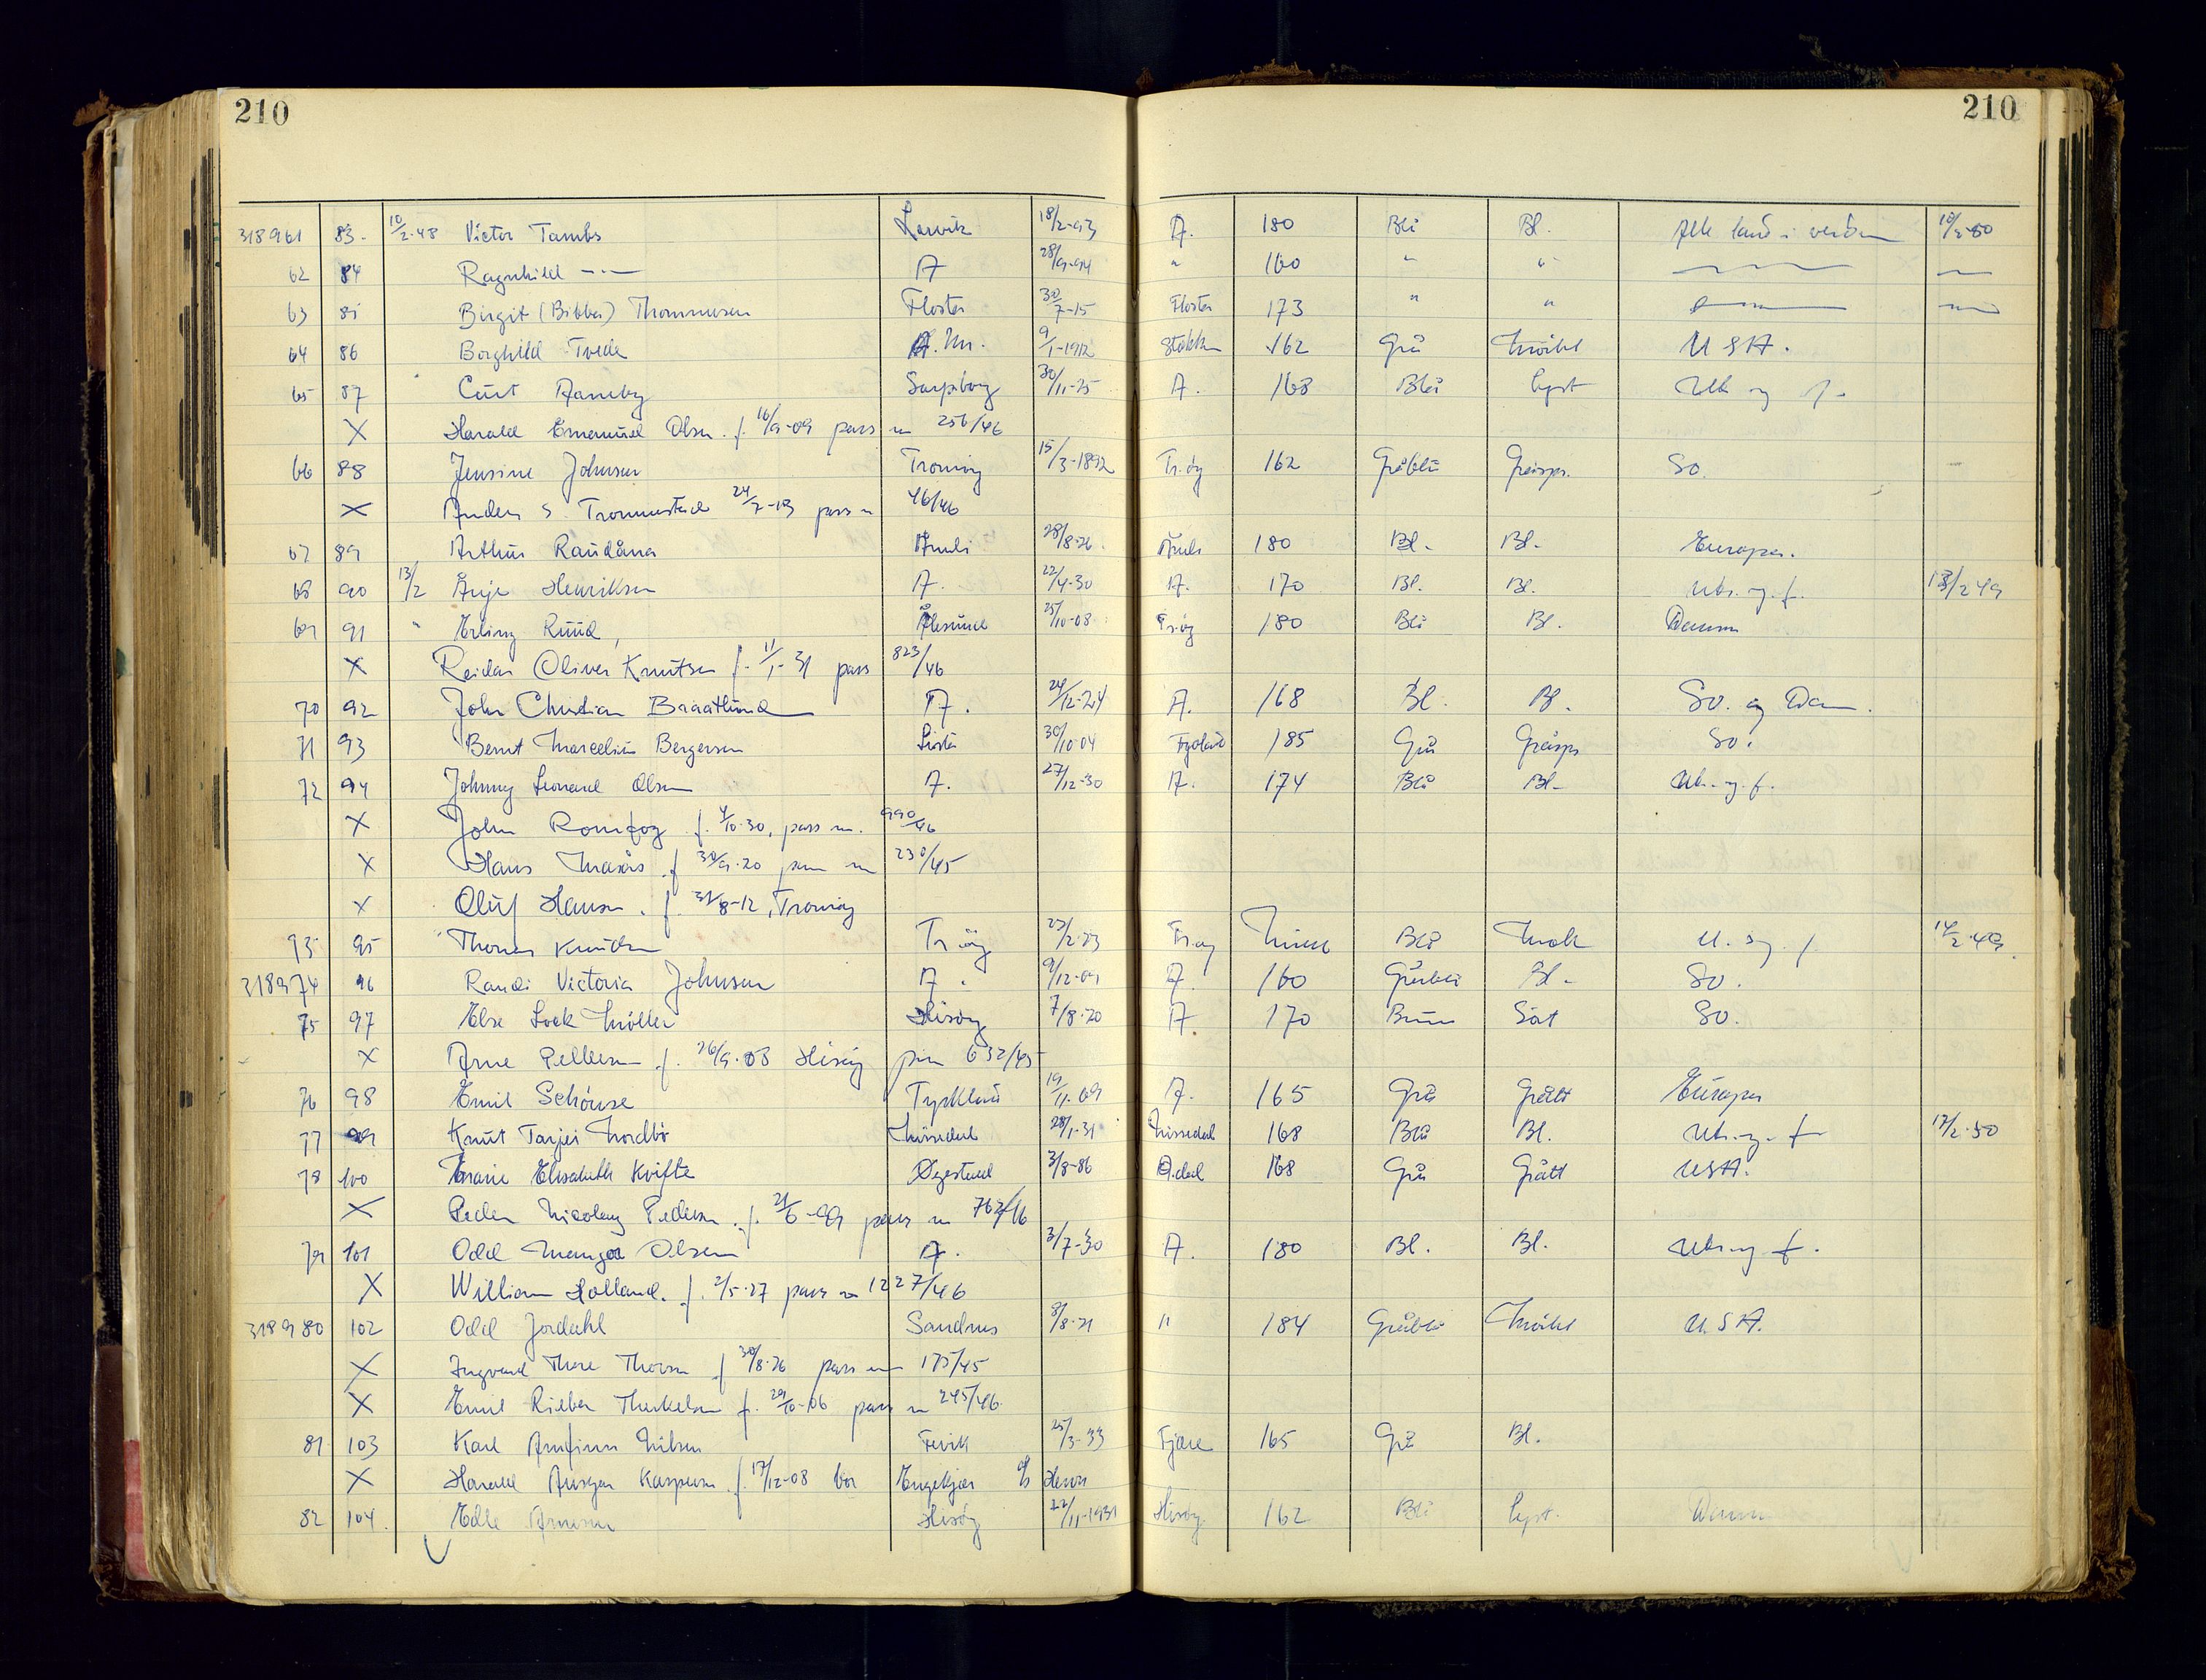 210 210
318961 83. 10/2-48 Victor Tambs Larvik 18/2-93 A. 180 Blå Bl. Alle land i verden 10/2-50
62 84 Ragnhild -"- A 28/9-94 " 160 " "
63 85 Birgit (Bibba) Thommesen Flosta 30/7-15 Flosta 173 " "
64 86 Borghild Tvede 9/1-1912 Stokken 162 Grå Mörkt USA.
65 87 Curt Ranneby Sarpsborg 30/11-25 A. 168 Blå lyst Utr og f.
X Harald Emanuel Olsen. f. 16/9-09 pass nr 256/46
66 88 Jensine Johnsen Tromöy 15/3-1892 Tr.öy 162 Gråblå Gråspr. So.
X Anders S. Trommestad 24/7-13 pass nr 46/46
67 89 Arthur Raudåna Åmli 28/8-26. Åmli 180 Bl. Bl. Europa.
68 90 13/2 Henriksen A. 22/4-30 A. 170 Bl. Bl. Utr. og. f. 13/2 49
69 91 " Erling Ruud, Ålesund 25/10-08 Tr.öy 180 Blå Bl. Danm
X Reidar Oliver Knutsen f. 11/1-31 pass 823/46
70 92 John Christian Braatlund A. 24/12-24 A. 168 Bl. Bl. So. og Dan.
71 93 Bernt Marcelius Bergersen Lista 30/10-04 Froland 185 Grå Gråspr So.
72 94 Johnny Leonard Olsen A. 27/12-30 A. 174 Blå Bl. Utr. og. f.
X John Romfog f. 4/10-30, pass nr. 990/46
X Hans f 30/9-20 pass nr 230/45
X Oluf Hansen. f. 31/8-12, Tromöy
73 95 " Thomas Knudsen Tr.öy 23/2-23 Tr.öy Blå Mörk U. og. f. 14/2-49
318974 96 Randi Victoria Johnsen A. 9/12-09 A. 160 Gråblå Bl. So.
75 97 Else Lock Möller Hisöy 7/8-20 A. 170 Brun Sort So.
X Arne Pettersen f. 26/9-08 Hisöy pass 632/45
76 98 Emil Schönse Tyskland 19/11-09 A. 165 Grå Grått Europa
77 99 Knut Tarjei Nordbö Nissedal 28/1-31 Nissedal 168 Blå Bl. Utr. og. f 17/2-50
78 100 Marie Elisabeth Kvifte Øyestad 3/8-86 168 Grå Grått USA.
X Peder Nicolay Pedersen. f. 21/6-99 pass nr 762/46
79 101 Odd Olsen A. 3/7-30 A. 180 Bl. Bl. Utr og f.
X William Holland. f. 2/5-27 pass nr 1227/46
318980 102 Odd Jordahl Sandnes 8/8-21 " 184 Gråblå Mörkt U.S.A.
X Ingvard Thore Thorsen f 30/8-26 pass nr 175/45
X Emil Rieber Therkelsen f. 29/10-06 pass nr 245/46
81 103 Karl Arnfinn Nilsen Fevik 25/3-33 Fjære 165 Grå Bl.
X Harald Ansgar Kaspersen f. 17/12-08 bor Engekjær
82 104. Edle Arnesen Hisöy 22/11-1931 Hisöy. 162 Blå lyst. Danm.